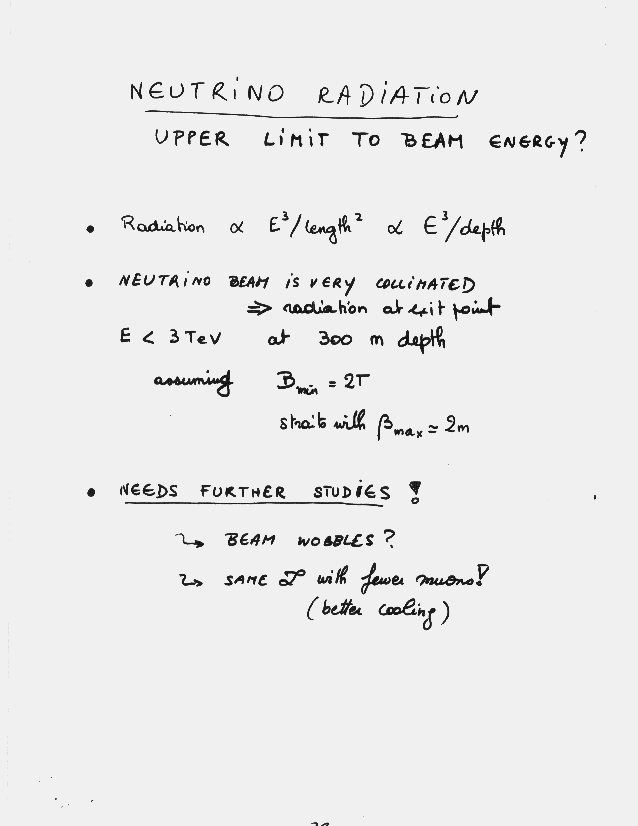 NEUTRINO RADIATION
UPPER LIMIT TO BEAM ENERGY?
• Radiation ∝ E³/length² ∝ E³/depth
• NEUTRINO BEAM IS VERY COLLIMATED
⇒ radiation at exit point
E < 3 TeV at 300 m depth
assuming B_min = 2T
straits with β_max ≃ 2m
• NEEDS FURTHER STUDIES !
↳ BEAM WOBBLES ?
↳ SAME ℒ with fewer muons!
(better cooling)